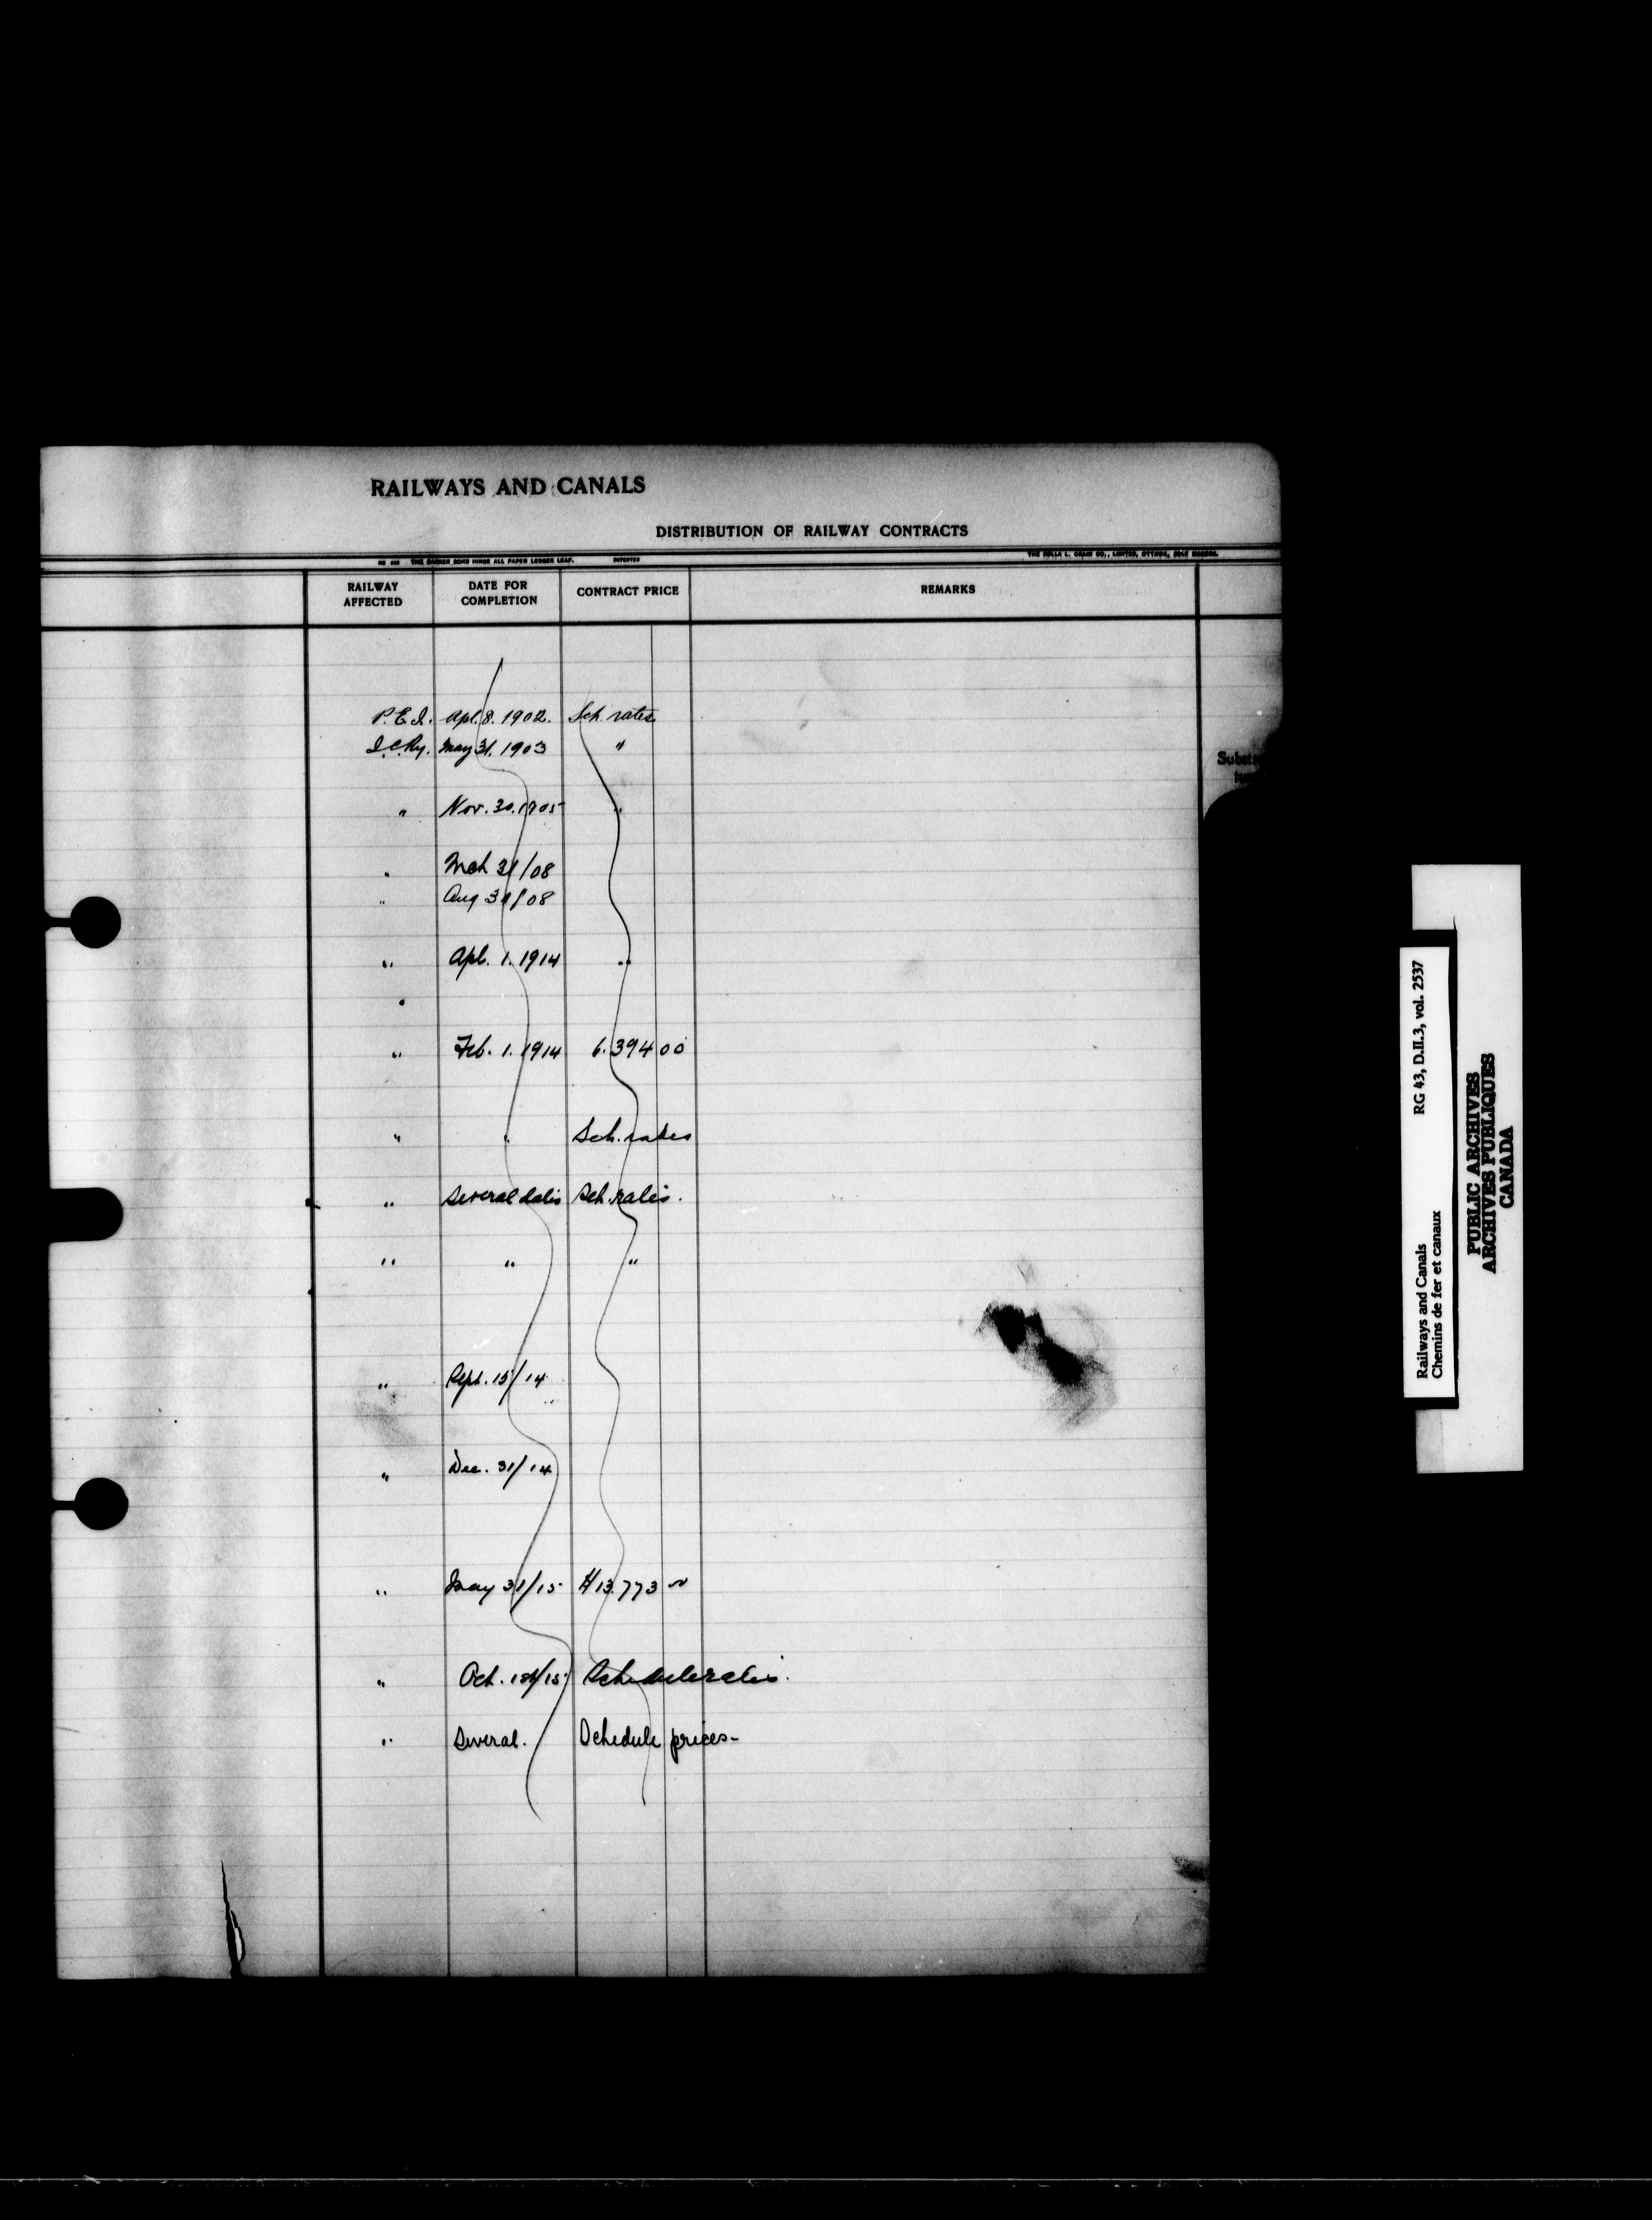 RAILWAYS AND CANALS
DISTRIBUTION OF RAILWAY CONTRACTS
THE BARKER BOND HINGE ALL PAPER LEDGER LEAF. PATENTED
THE ROLLA L. CRAIN CO., LIMITED, OTTAWA, SOLE MAKERS.
RAILWAY AFFECTED DATE FOR COMPLETION CONTRACT PRICE REMARKS
P.E.I. Apl. 8. 1902. Sch. rates
I.C.Ry. May 31. 1903 "
" Nov. 30. 1905 "
" Mch 31/08
" Aug 31/08
" Apl. 1. 1914 "
"
" Feb. 1. 1914 6.394 00
" " Sch. rates
" Several dates Sch. rates.
" " "
" Sept. 15/14
" Dec. 31/14
" May 31/15 $13.773
" Oct. /15 Schedule rates.
" Several. Schedule prices-
RG 43, D.II.3, vol. 2537
Railways and Canals
Chemins de fer et canaux
PUBLIC ARCHIVES
ARCHIVES PUBLIQUES
CANADA